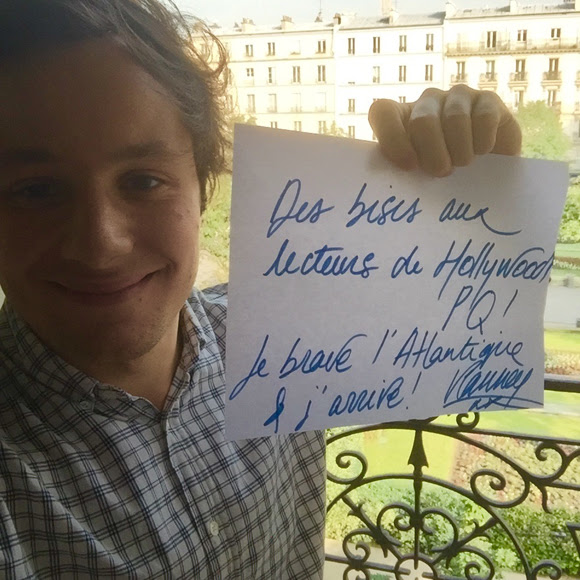 Des bises aux
lecteurs de Hollywood
PQ!
Je brave l'Atlantique
& j'arrive! Vanney